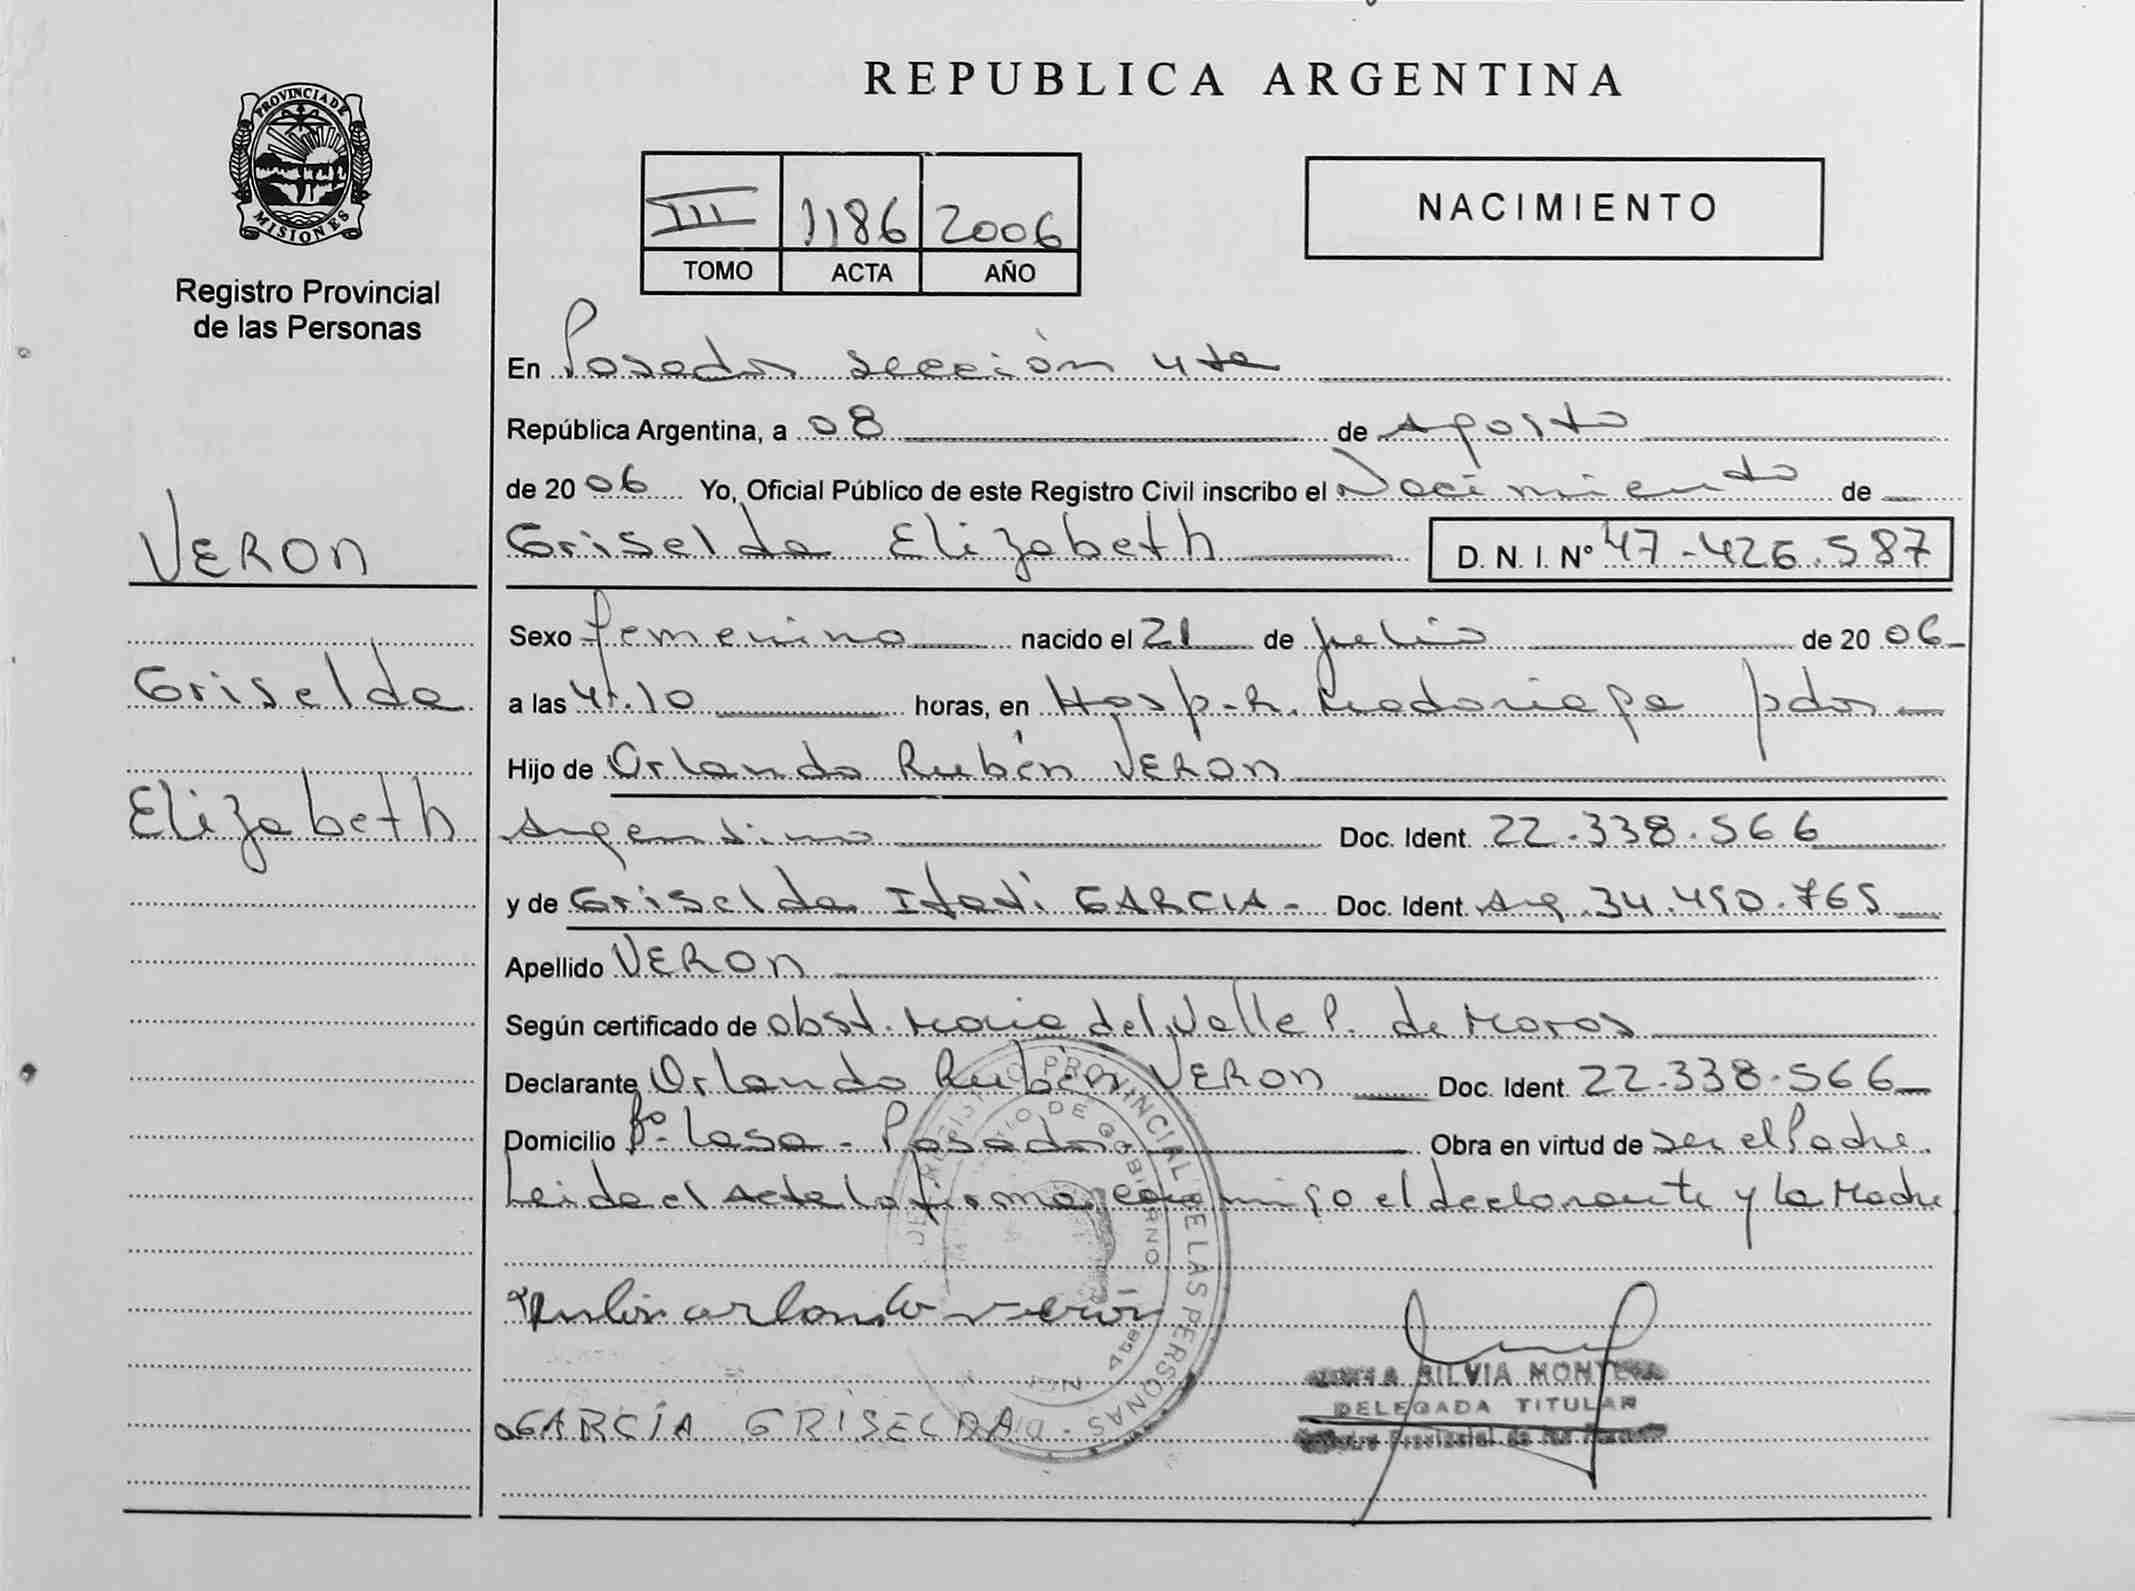 REPUBLICA ARGENTINA
PROVINCIA DE
MISIONES
Registro Provincial
de las Personas
III 1186 2006
TOMO ACTA AÑO
NACIMIENTO
En Posadas sección 4ta
República Argentina, a 08 de Agosto
de 2006 Yo, Oficial Público de este Registro Civil inscribo el Nacimiento de
Griselda Elizabeth D. N. I. Nº 47-426.587
VERON
Griselda
Elizabeth
Sexo femenino nacido el 21 de julio de 2006
a las 4,10 horas, en Hosp. R. Madariaga pdas
Hijo de Orlando Rubén VERON
Argentino Doc. Ident. 22.338.566
y de Griselda Itatí GARCIA - Doc. Ident. Arg. 34.450.765
Apellido VERON
Según certificado de obst. Maria del Valle P. de Maros
Declarante Orlando Rubén VERON Doc. Ident. 22.338.566
Domicilio Bº Lasa - Posadas Obra en virtud de ser el Padre
Leida el Acta la firma conmigo el declarante y la Madre
Rubén orlando veron
GARCÍA GRISELDA
SILVIA
DELEGADA TITULAR
Provincial de las
REGISTRO PROVINCIAL DE LAS PERSONAS
DE GOBIERNO